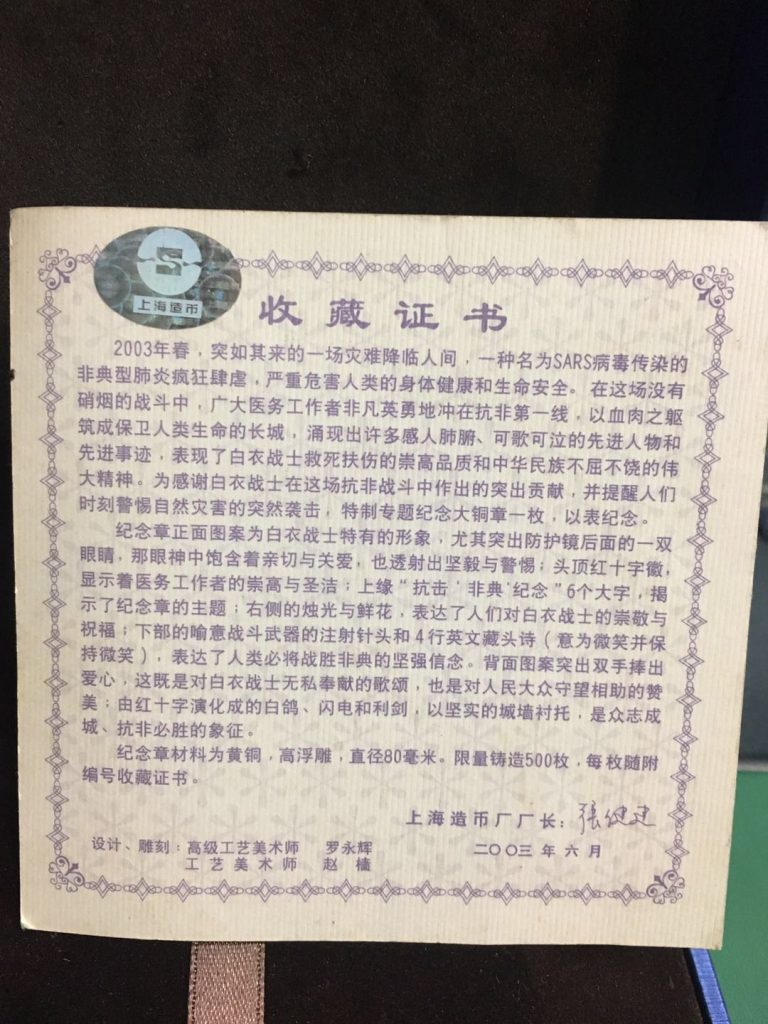 S
上海造币
收藏证书
2003年春，突如其来的一场灾难降临人间，一种名为SARS病毒传染的
非典型肺炎疯狂肆虐，严重危害人类的身体健康和生命安全。在这场没有
硝烟的战斗中，广大医务工作者非凡英勇地冲在抗非第一线，以血肉之躯
筑成保卫人类生命的长城，涌现出许多感人肺腑、可歌可泣的先进人物和
先进事迹，表现了白衣战士救死扶伤的崇高品质和中华民族不屈不饶的伟
大精神。为感谢白衣战士在这场抗非战斗中作出的突出贡献，并提醒人们
时刻警惕自然灾害的突然袭击，特制专题纪念大铜章一枚，以表纪念。
纪念章正面图案为白衣战士特有的形象，尤其突出防护镜后面的一双
眼睛，那眼神中饱含着亲切与关爱，也透射出坚毅与警惕；头顶红十字徽，
显示着医务工作者的崇高与圣洁；上缘“抗击‘非典’纪念”6个大字，揭
示了纪念章的主题；右侧的烛光与鲜花，表达了人们对白衣战士的崇敬与
祝福；下部的喻意战斗武器的注射针头和4行英文藏头诗（意为微笑并保
持微笑），表达了人类必将战胜非典的坚强信念。背面图案突出双手捧出
爱心，这既是对白衣战士无私奉献的歌颂，也是对人民大众守望相助的赞
美；由红十字演化成的白鸽、闪电和利剑，以坚实的城墙衬托，是众志成
城、抗非必胜的象征。
纪念章材料为黄铜，高浮雕，直径80毫米。限量铸造500枚，每枚随附
编号收藏证书。
上海造币厂厂长：张健建
设计、雕刻：高级工艺美术师 罗永辉
工艺美术师 赵樯
二〇〇三年六月